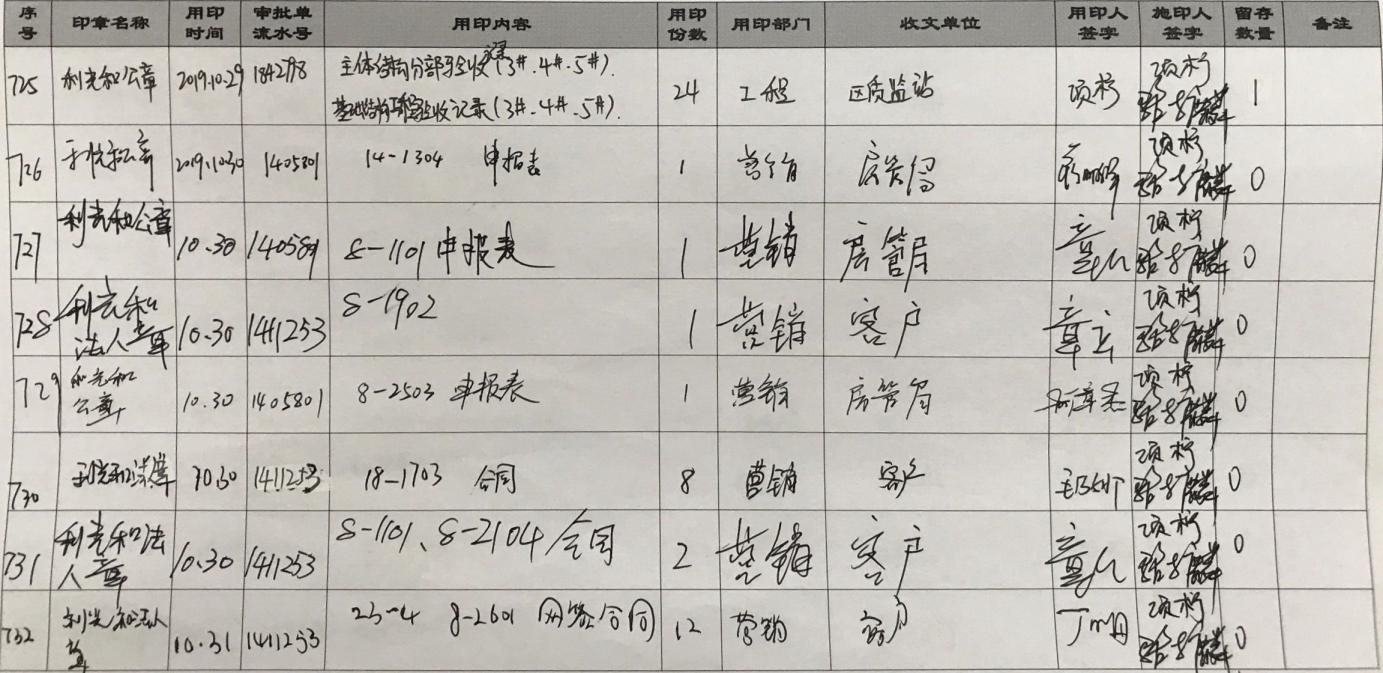 序号 印章名称 用印时间 审批单流水号 用印内容 用印份数 用印部门 收文单位 用印人签字 施印人签字 留存数量 备注
725 利光和公章 2019.10.29 1842798 主体结构分部验收(3#.4#.5#). 24 工程 区质监站 项柠 项柠 1
验收记录(3#.4#.5#).
726 利光和公章 2019.10.30 1405801 14-1304 申报表 1 营销 房管局 项柠 0
727 利光和公章 10.30 140581 8-1101申报表 1 营销 房管局 项柠 0
728 利光和法人章 10.30 1411253 8-1902 1 营销 客户 章立 项柠 0
729 利光和公章 10.30 1405801 8-2503 申报表 1 营销 房管局 项柠 0
730 利光和法人章 10.30 1411253 18-1703 合同 8 营销 客户 项柠 0
731 利光和法人章 10.30 1411253 8-1101、8-2104合同 2 营销 客户 项柠 0
732 利光和法人章 10.31 1411253 23-4 8-2601 网签合同 12 营销 客户 项柠 0